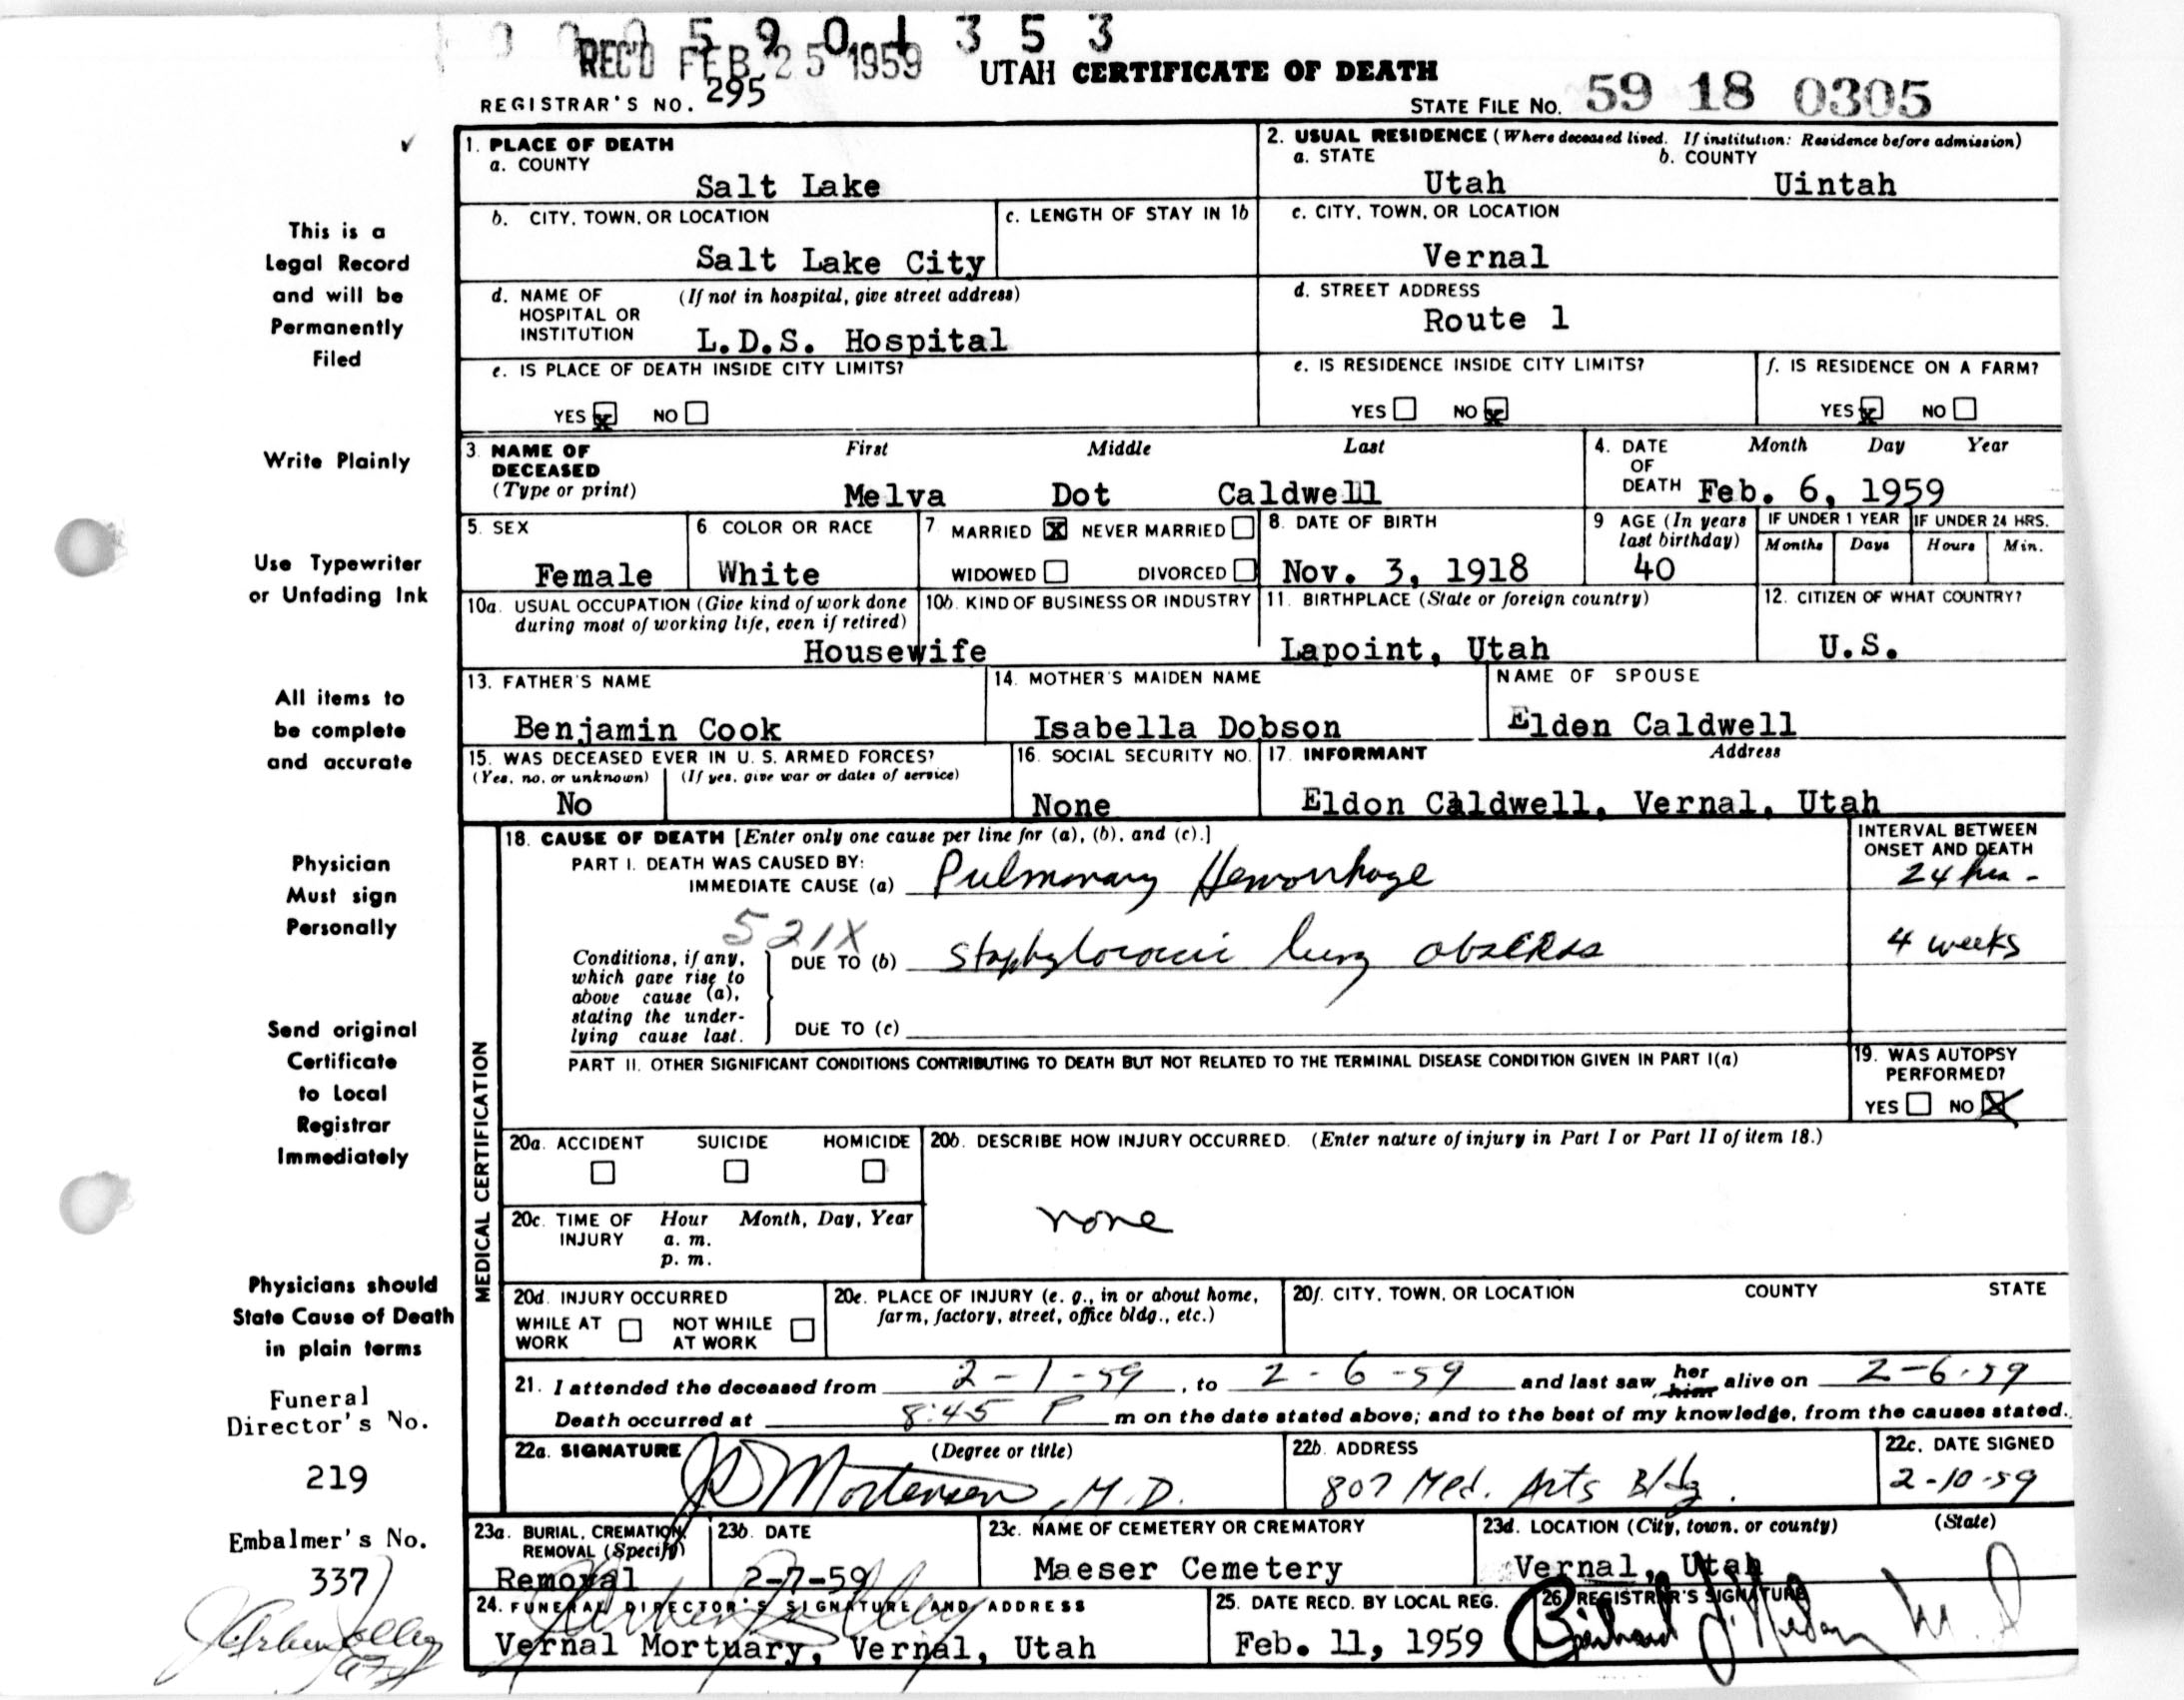 5 9 0 1 3 5 3
REC'D FEB 25 1959
UTAH CERTIFICATE OF DEATH
REGISTRAR'S NO. 295
STATE FILE No. 59 18 0305
1. PLACE OF DEATH
a. COUNTY
Salt Lake
2. USUAL RESIDENCE (Where deceased lived. If institution: Residence before admission)
a. STATE b. COUNTY
Utah Uintah
b. CITY, TOWN, OR LOCATION
Salt Lake City
c. LENGTH OF STAY IN 1b
c. CITY, TOWN, OR LOCATION
Vernal
d. NAME OF HOSPITAL OR INSTITUTION (If not in hospital, give street address)
L.D.S. Hospital
d. STREET ADDRESS
Route 1
e. IS PLACE OF DEATH INSIDE CITY LIMITS?
YES x NO
e. IS RESIDENCE INSIDE CITY LIMITS?
YES NO x
f. IS RESIDENCE ON A FARM?
YES x NO
3. NAME OF DECEASED (Type or print)
First Middle Last
Melva Dot Caldwell
4. DATE OF DEATH Month Day Year
Feb. 6, 1959
5. SEX
Female
6. COLOR OR RACE
White
7. MARRIED X NEVER MARRIED
WIDOWED DIVORCED
8. DATE OF BIRTH
Nov. 3, 1918
9 AGE (In years last birthday)
40
IF UNDER 1 YEAR
Months Days
IF UNDER 24 HRS.
Hours Min.
10a. USUAL OCCUPATION (Give kind of work done during most of working life, even if retired)
Housewife
10b. KIND OF BUSINESS OR INDUSTRY
11. BIRTHPLACE (State or foreign country)
Lapoint, Utah
12. CITIZEN OF WHAT COUNTRY?
U.S.
13. FATHER'S NAME
Benjamin Cook
14. MOTHER'S MAIDEN NAME
Isabella Dobson
NAME OF SPOUSE
Elden Caldwell
15. WAS DECEASED EVER IN U. S. ARMED FORCES?
(Yes, no, or unknown) (If yes, give war or dates of service)
No
16. SOCIAL SECURITY NO.
None
17. INFORMANT Address
Eldon Caldwell, Vernal, Utah
MEDICAL CERTIFICATION
18. CAUSE OF DEATH [Enter only one cause per line for (a), (b), and (c).]
INTERVAL BETWEEN ONSET AND DEATH
PART I. DEATH WAS CAUSED BY:
IMMEDIATE CAUSE (a) Pulmonary Hemorrhage 24 hrs -
521X
Conditions, if any, which gave rise to above cause (a), stating the underlying cause last.
DUE TO (b) Staphylococcic lung abscess 4 weeks
DUE TO (c)
PART II. OTHER SIGNIFICANT CONDITIONS CONTRIBUTING TO DEATH BUT NOT RELATED TO THE TERMINAL DISEASE CONDITION GIVEN IN PART I(a)
19. WAS AUTOPSY PERFORMED?
YES NO X
20a. ACCIDENT SUICIDE HOMICIDE
20b. DESCRIBE HOW INJURY OCCURRED. (Enter nature of injury in Part I or Part II of item 18.)
none
20c. TIME OF INJURY Hour Month, Day, Year
a. m.
p. m.
20d. INJURY OCCURRED
WHILE AT WORK NOT WHILE AT WORK
20e. PLACE OF INJURY (e. g., in or about home, farm, factory, street, office bldg., etc.)
20f. CITY, TOWN, OR LOCATION COUNTY STATE
21. I attended the deceased from 2-1-59, to 2-6-59 and last saw her him alive on 2-6-59
Death occurred at 8:45 P m on the date stated above; and to the best of my knowledge, from the causes stated.
22a. SIGNATURE (Degree or title)
Mortensen, M.D.
22b. ADDRESS
807 Med. Arts Bldg.
22c. DATE SIGNED
2-10-59
23a. BURIAL, CREMATION, REMOVAL (Specify)
Removal
23b. DATE
2-7-59
23c. NAME OF CEMETERY OR CREMATORY
Maeser Cemetery
23d. LOCATION (City, town, or county) (State)
Vernal, Utah
24. FUNERAL DIRECTOR'S SIGNATURE AND ADDRESS
Vernal Mortuary, Vernal, Utah
25. DATE RECD. BY LOCAL REG.
Feb. 11, 1959
26 REGISTRAR'S SIGNATURE
This is a
Legal Record
and will be
Permanently
Filed
Write Plainly
Use Typewriter
or Unfading Ink
All items to
be complete
and accurate
Physician
Must sign
Personally
Send original
Certificate
to Local
Registrar
Immediately
Physicians should
State Cause of Death
in plain terms
Funeral
Director's No.
219
Embalmer's No.
337